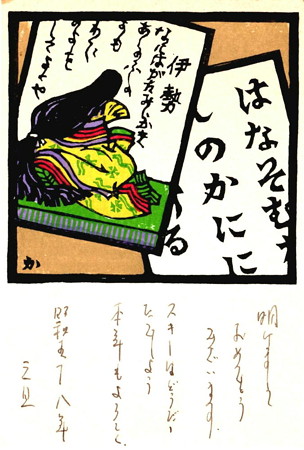 はなそむ
しのかにに
る
伊勢
なにはがたみじかき
あしのふしの
まも
あはて
このよを
してよとや
明けまして
おめでとう
ございます。
スキーはどうだい
本年もよろしく
昭和五十八年
元旦